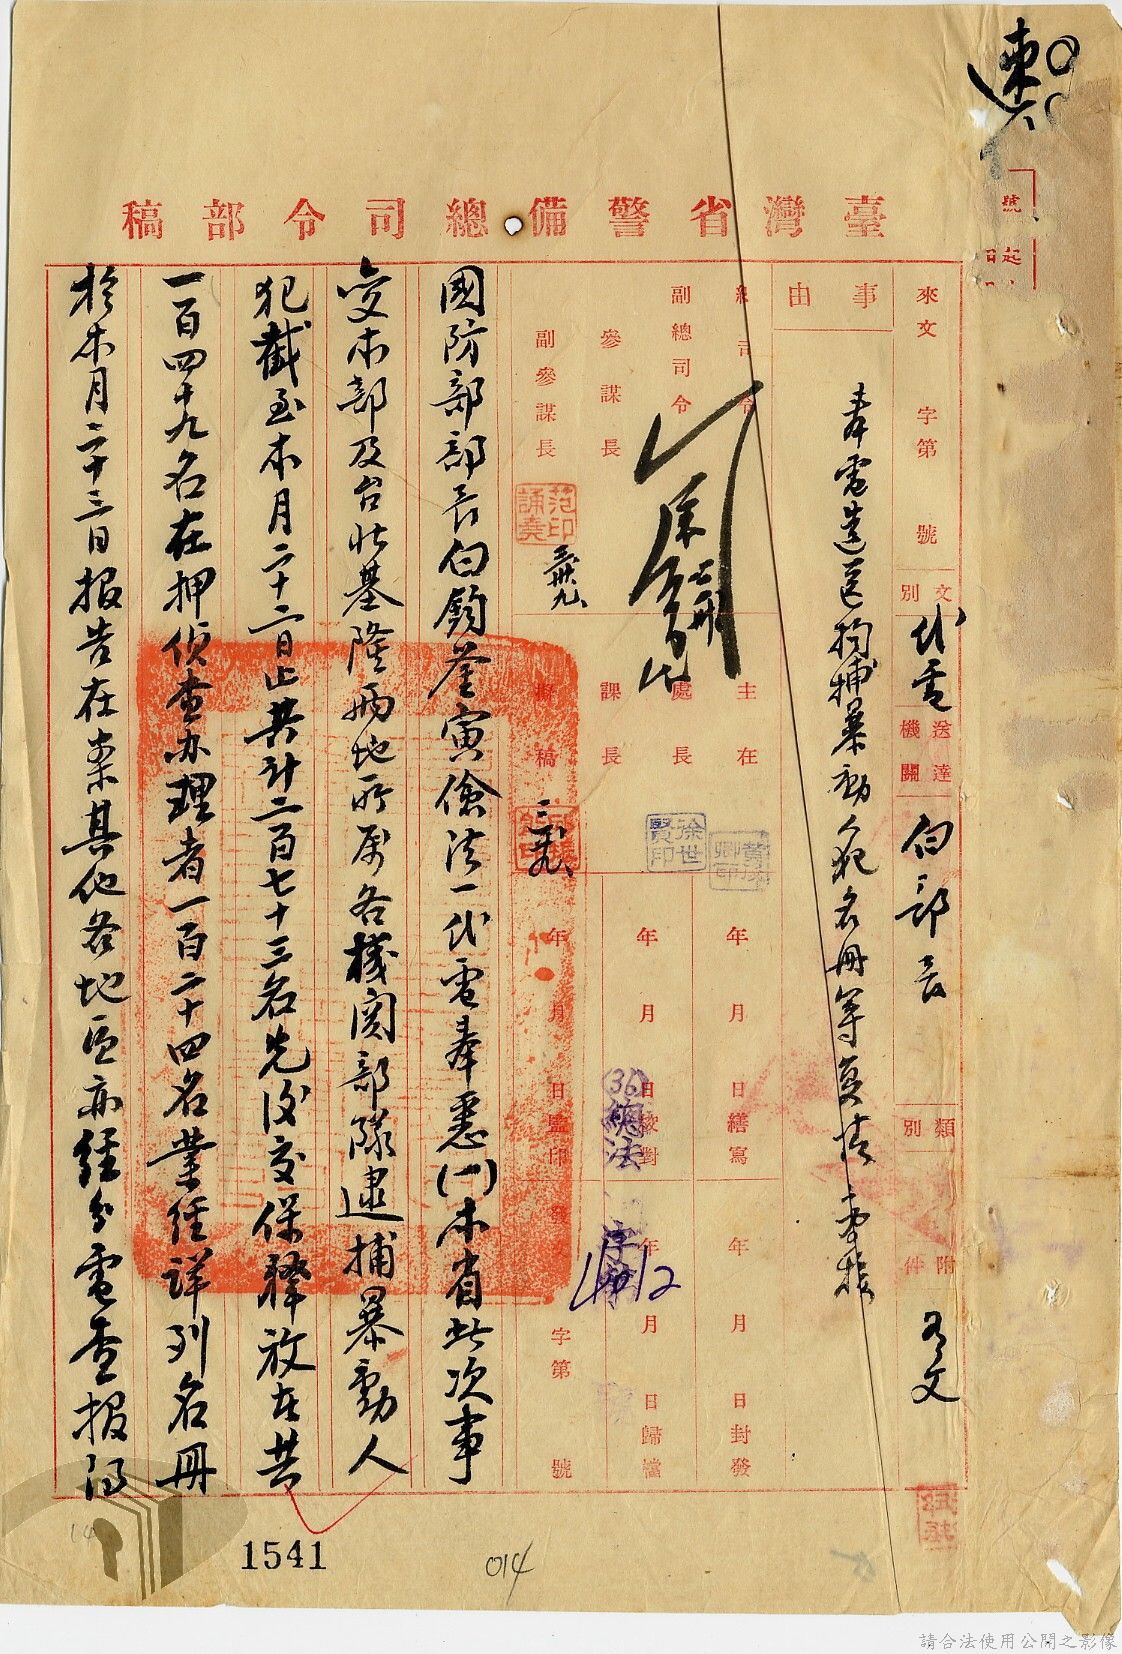 速
臺灣省警備總司令部稿
號
來文 字第 號
文別 代電
送達機關 白部長
類別
附件 另文
事由
奉電造送拘捕暴動人犯名冊等復請 查核
總司令
副總司令
參謀長
副參謀長
范誦堯印
主在
處長
課長
擬稿
徐世賢印
年 月 日繕寫
年 月 日校對
年 月 日監印
年 月 日封發
年 月 日歸檔
字第 號
(36)總法 字第
國防部部長白鈞鑒寅儉法一代電奉悉(一)本省此次事
變本部及台北基隆兩地所屬各機関部隊逮捕暴動人
犯截至本月二十二日止共計二百七十三名先後交保釋放在共
一百四十九名在押偵查办理者一百二十四名業經詳列名冊
於本月二十三日报告在案其他各地區亦經分電查报
1541
014
請合法使用公開之影像